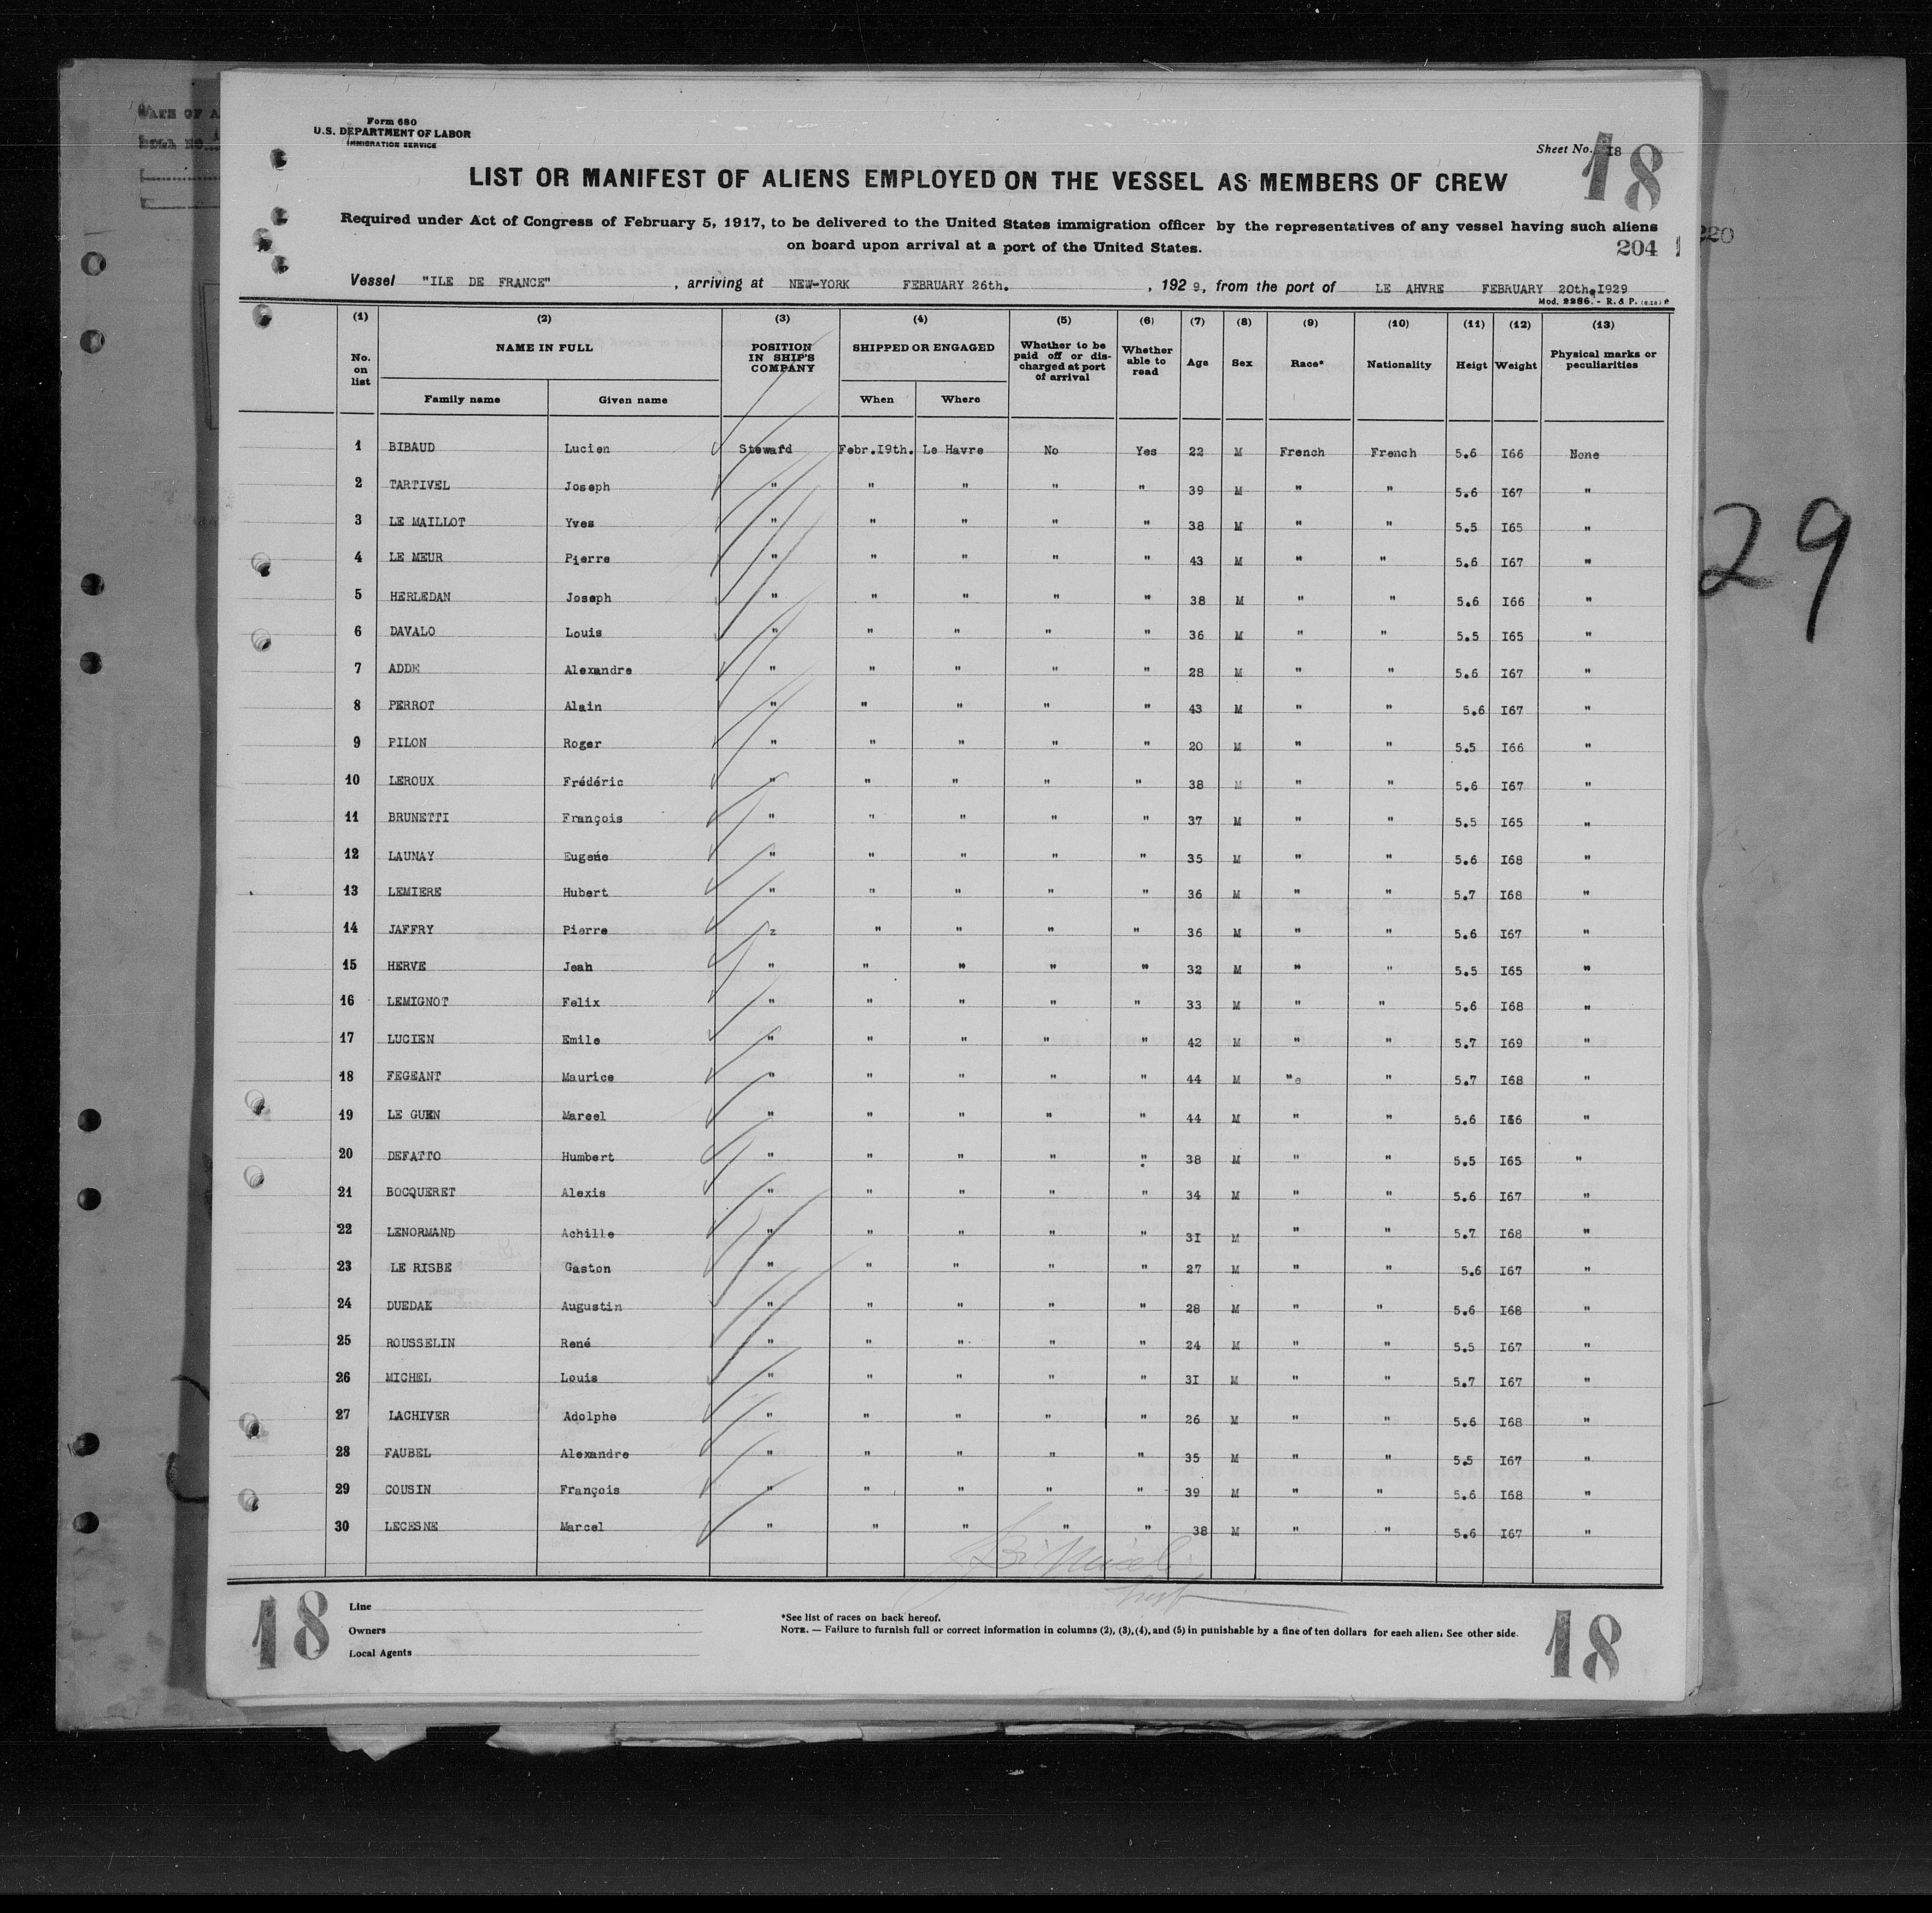 Form 680
U.S. DEPARTMENT OF LABOR
IMMIGRATION SERVICE
Sheet No. I8
18
LIST OR MANIFEST OF ALIENS EMPLOYED ON THE VESSEL AS MEMBERS OF CREW
Required under Act of Congress of February 5, 1917, to be delivered to the United States immigration officer by the representatives of any vessel having such aliens
on board upon arrival at a port of the United States.
204
220
Vessel "ILE DE FRANCE" , arriving at NEW-YORK FEBRUARY 26th. , 192 9, from the port of LE AHVRE FEBRUARY 20th.I929
Mod. 2286. - R. & P.
(1) (2) (3) (4) (5) (6) (7) (8) (9) (10) (11) (12) (13)
No. on list NAME IN FULL Family name Given name POSITION IN SHIP'S COMPANY SHIPPED OR ENGAGED When Where Whether to be paid off or discharged at port of arrival Whether able to read Age Sex Race* Nationality Heigt Weight Physical marks or peculiarities
1 BIBAUD Lucien Steward Febr.I9th. Le Havre No Yes 22 M French French 5.6 I66 None
2 TARTIVEL Joseph " " " " " 39 M " " 5.6 I67 "
3 LE MAILLOT Yves " " " " " 38 M " " 5.5 I65 "
4 LE MEUR Pierre " " " " 43 M " " 5.6 I67 "
5 HERLEDAN Joseph " " " " " 38 M " " 5.6 I66 "
6 DAVALO Louis " " " " " 36 M " " 5.5 I65 "
7 ADDE Alexandre " " " " " 28 M " " 5.6 I67 "
8 PERROT Alain " " " " " 43 M " " 5.6 I67 "
9 PILON Roger " " " " " 20 M " " 5.5 I66 "
10 LEROUX Frédéric " " " " " 38 M " " 5.6 I67 "
11 BRUNETTI François " " " " " 37 M " " 5.5 I65 "
12 LAUNAY Eugene " " " " " 35 M " " 5.6 I68 "
13 LEMIERE Hubert " " " " " 36 M " " 5.7 I68 "
14 JAFFRY Pierre z " " " " 36 M " " 5.6 I67 "
15 HERVE Jean " " " " " 32 M " " 5.5 I65 "
16 LEMIGNOT Felix " " " " " 33 M " " 5.6 I68 "
17 LUCIEN Emile " " " " " 42 M " " 5.7 I69 "
18 FEGEANT Maurice " " " " " 44 M "e " 5.7 I68 "
19 LE GUEN Marcel " " " " " 44 M " " 5.6 I66 "
20 DEFATTO Humbert " " " " " 38 M " " 5.5 I65 "
21 BOCQUERET Alexis " " " " " 34 M " " 5.6 I67 "
22 LENORMAND Achille " " " " " 3I M " " 5.7 I68 "
23 LE RISBE Gaston " " " " " 27 M " " 5.6 I67 "
24 DUEDAK Augustin " " " " " 28 M " " 5.6 I68 "
25 ROUSSELIN René " " " " " 24 M " " 5.5 I67 "
26 MICHEL Louis " " " " " 3I M " " 5.7 I67 "
27 LACHIVER Adolphe " " " " " 26 M " " 5.6 I68 "
28 FAUBEL Alexandre " " " " " 35 M " " 5.5 I67 "
29 COUSIN François " " " " " 39 M " " 5.6 I68 "
30 LECESNE Marcel " " " " " 38 M " " 5.6 I67 "
29
Line
Owners
Local Agents
*See list of races on back hereof.
NOTE. — Failure to furnish full or correct information in columns (2), (3), (4), and (5) in punishable by a fine of ten dollars for each alien. See other side.
18
18